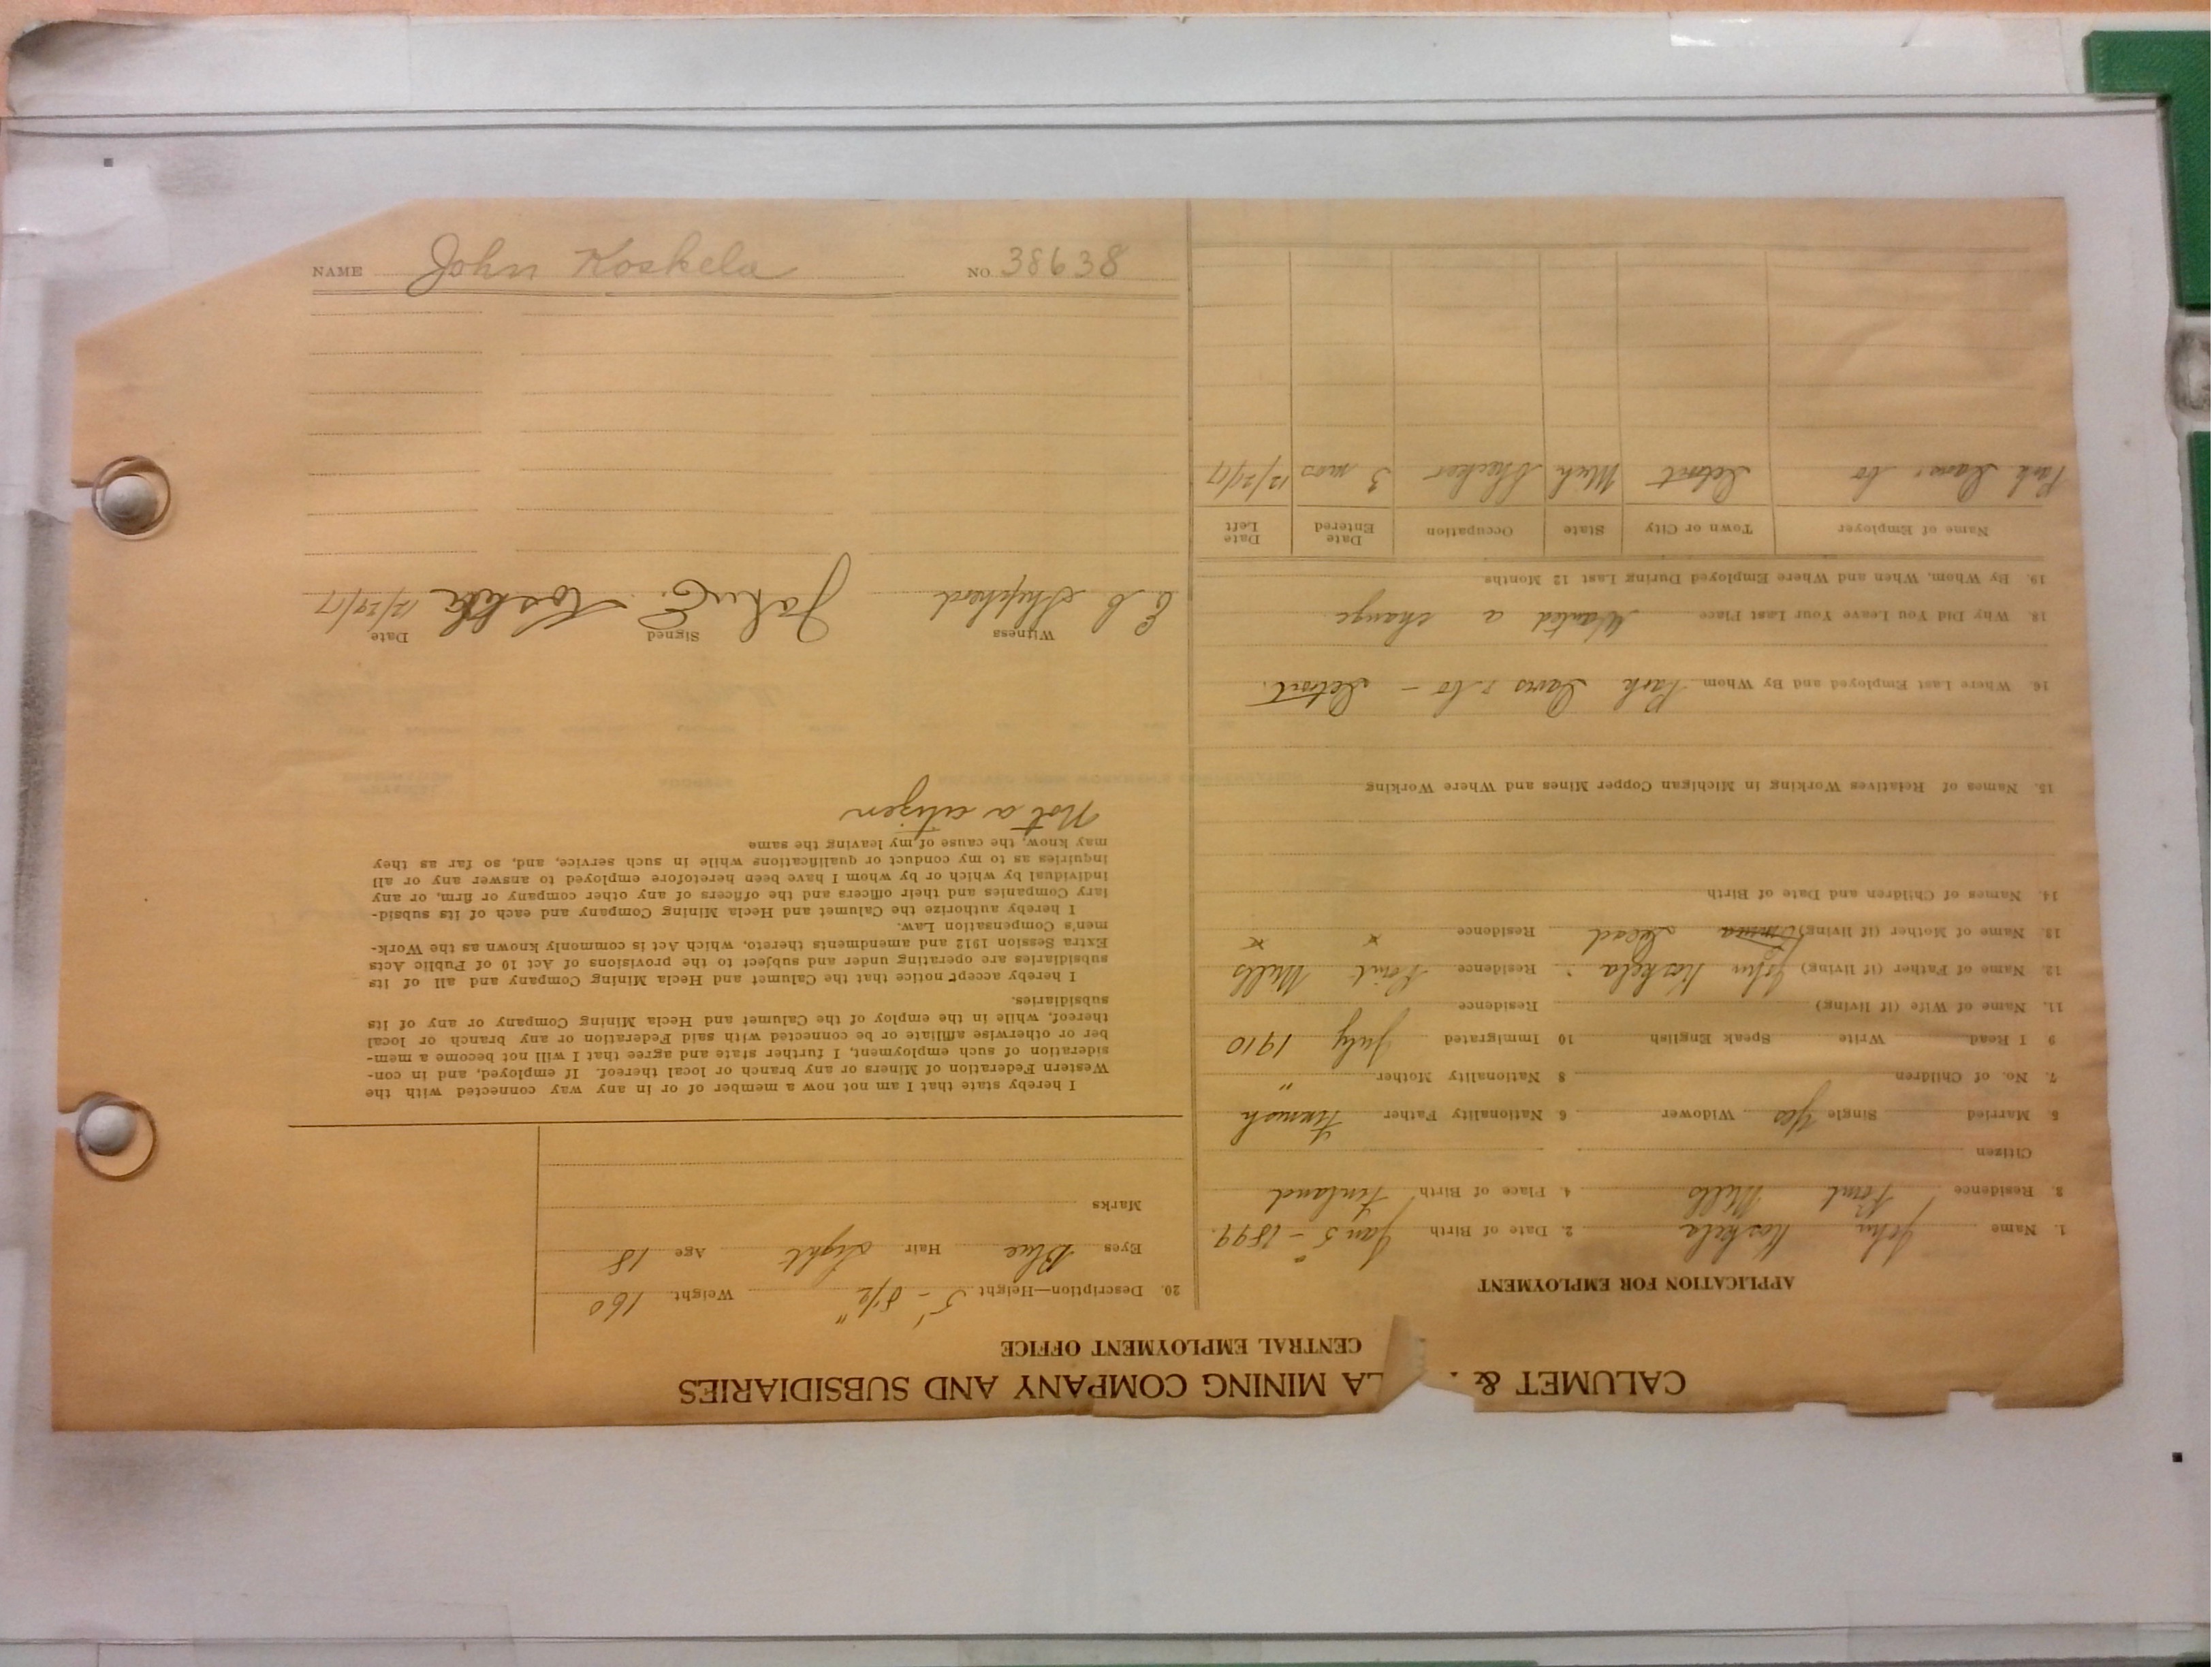 CALUMET & . LA MINING COMPANY AND SUBSIDIARIES
CENTRAL EMPLOYMENT OFFICE
APPLICATION FOR EMPLOYMENT
1. Name John Koskela 2. Date of Birth Jan 5" - 1899.
3. Residence Point Mills 4. Place of Birth Finland
Citizen
5 Married Single Yes Widower 6 Nationality Father Finnish
7. No. of Children 8 Nationality Mother "
9 I Read Write Speak English 10 Immigrated July 1910
11. Name of Wife (if living) Residence
12. Name of Father (if living) John Koskela Residence Point Mills
13. Name of Mother (if living) Emma Dead Residence x x
14. Names of Children and Date of Birth
15. Names of Relatives Working in Michigan Copper Mines and Where Working
16. Where Last Employed and By Whom Park Davis & Co - Detroit.
18. Why Did You Leave Your Last Place Wanted a change
19. By Whom, When and Where Employed During Last 12 Months
Name of Employer Town or City State Occupation Date Entered Date Left
Park Davis & Co Detroit Mich 3 mos 12/21/17
20. Description—Height 5' - 8½" Weight 160
Eyes Blue Hair Light Age 18
Marks
I hereby state that I am not now a member of or in any way connected with the
Western Federation of Miners or any branch or local thereof. If employed, and in con-
sideration of such employment, I further state and agree that I will not become a mem-
ber or otherwise affiliate or be connected with said Federation or any branch or local
thereof, while in the employ of the Calumet and Hecla Mining Company or any of its
subsidiaries.
I hereby accept notice that the Calumet and Hecla Mining Company and all of its
subsidiaries are operating under and subject to the provisions of Act 10 of Public Acts
Extra Session 1912 and amendments thereto, which Act is commonly known as the Work-
men's Compensation Law.
I hereby authorize the Calumet and Hecla Mining Company and each of its subsid-
iary Companies and their officers and the officers of any other company or firm, or any
individual by which or by whom I have been heretofore employed to answer any or all
inquiries as to my conduct or qualifications while in such service, and, so far as they
may know, the cause of my leaving the same
Not a citizen
Witness Signed Date
E C Shepherd John E. Koskela 12/29/17
NAME John Koskela NO. 38638